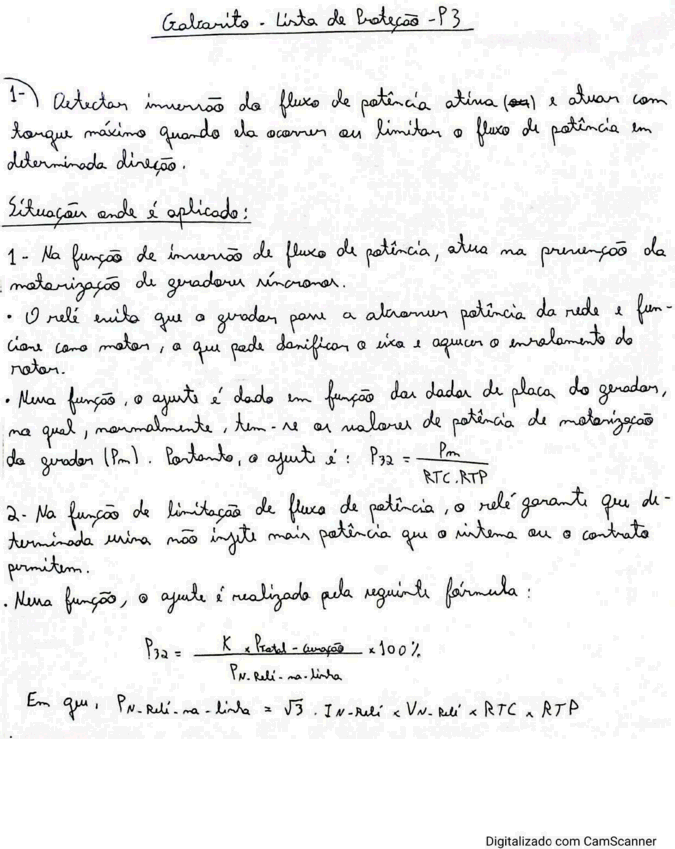 Gabarito - Lista de Proteção - P3
1-) Detectar inversão do fluxo de potência ativa e atuar com
torque máximo quando ela ocorrer ou limitar o fluxo de potência em
determinada direção.
Situação onde é aplicado:
1- Na função de inversão de fluxo de potência, atua na prevenção da
motorização de geradores síncronos.
• O relé evita que o gerador passe a absorver potência da rede e fun-
cione como motor, o que pode danificar o eixo e aquecer o enrolamento do
rotor.
• Nessa função, o ajuste é dado em função dos dados de placa do gerador,
na qual, normalmente, tem-se os valores de potência de motorização
do gerador (Pm). Portanto, o ajuste é: P32 = Pm / RTC.RTP
2- Na função de limitação de fluxo de potência, o relé garante que de-
terminada usina não injete mais potência que o sistema ou o contrato
permitem.
• Nessa função, o ajuste é realizado pela seguinte fórmula:
P32 = K x Ptotal-geração / PN-Relé-na-linha x 100%
Em que, PN-Relé-na-linha = √3 . IN-Relé x VN-Relé x RTC x RTP
Digitalizado com CamScanner